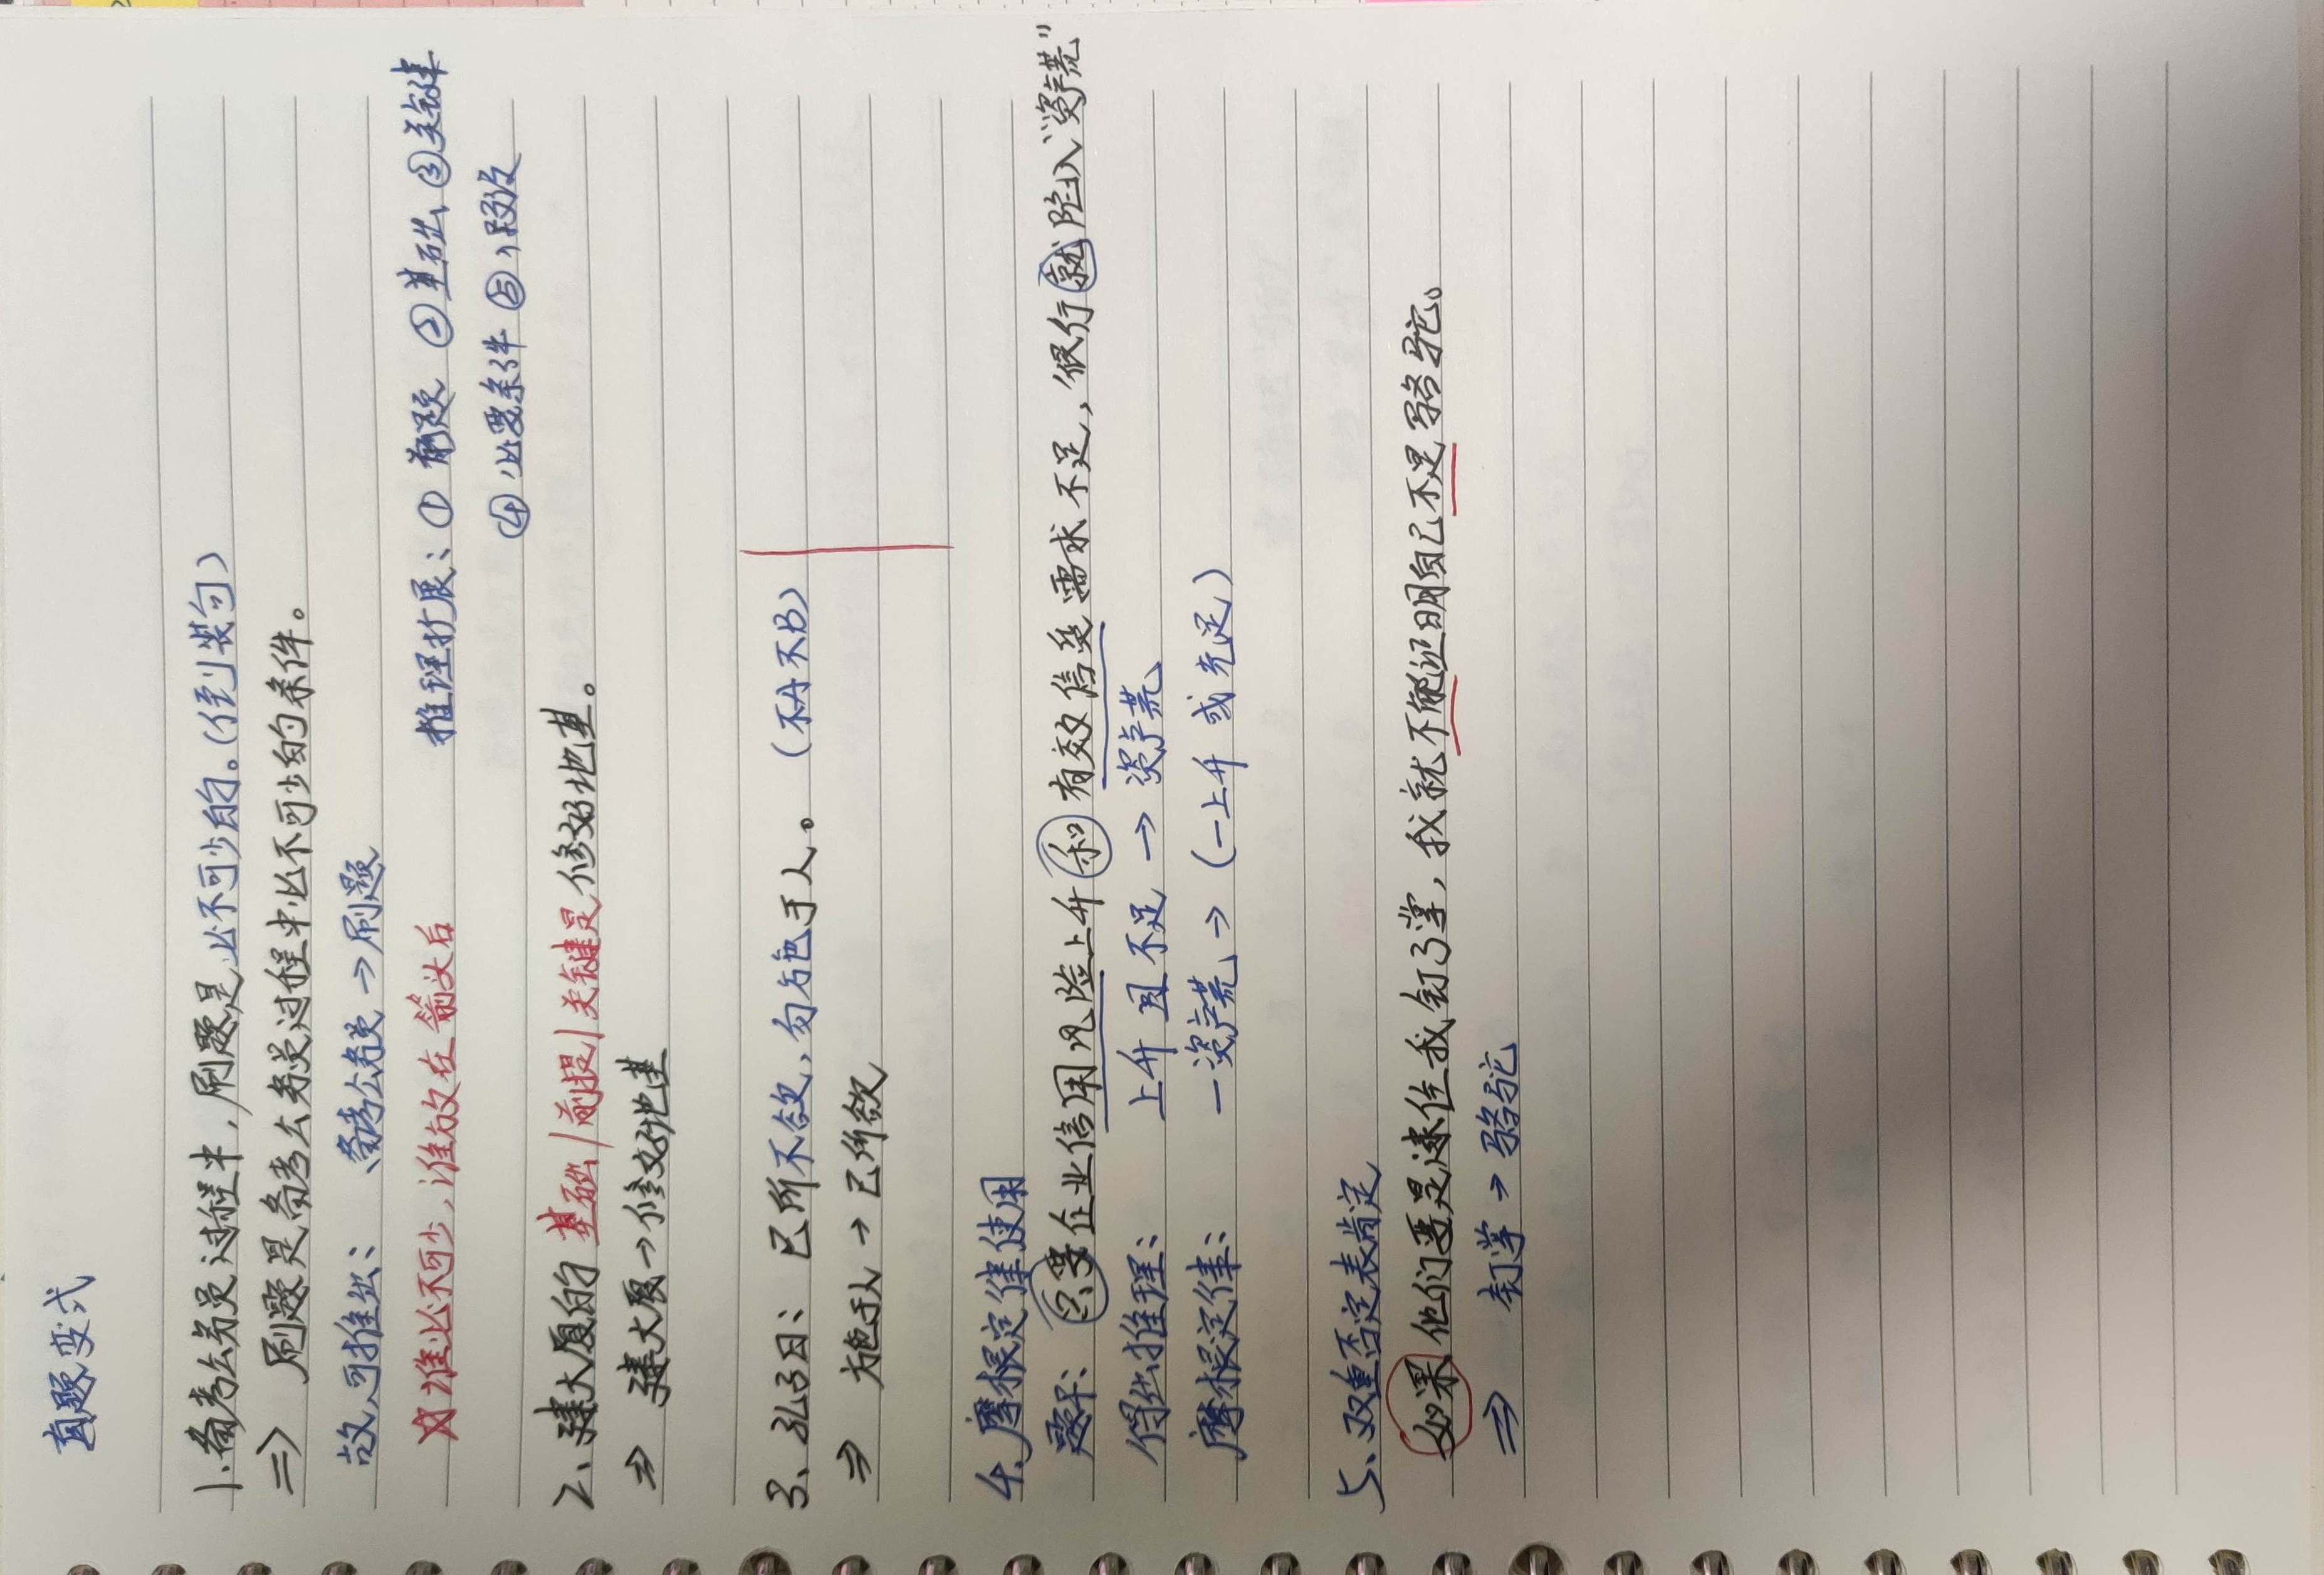 真题变式
1.备考公务员过程中,刷题是必不可少的。(倒装句)
⇒ 刷题是备考公务员过程中必不可少的条件。
故,可推出: 备考公务员→刷题
☆谁必不可少,谁放在箭头后 推理扩展:① 前题 ②基础 ③关键
④必要条件 ⑤假设
2、建大厦的基础/前提/关键是修好地基。
⇒ 建大厦→修好地基
3、孔子曰: 己所不欲,勿施于人。(不A不B)
⇒ 施于人→己所欲
4、摩根定律使用
题干: 只要企业信用风险上升和有效信贷需求不足,银行就陷入“资产荒”
得出推理: 上升且不足→资产荒
摩根定律: —资产荒→(—上升或充足)
5、双重否定表肯定
如果他们要是逮住我钉了掌,我就不能证明自己不是骆驼。
⇒ 钉掌→骆驼